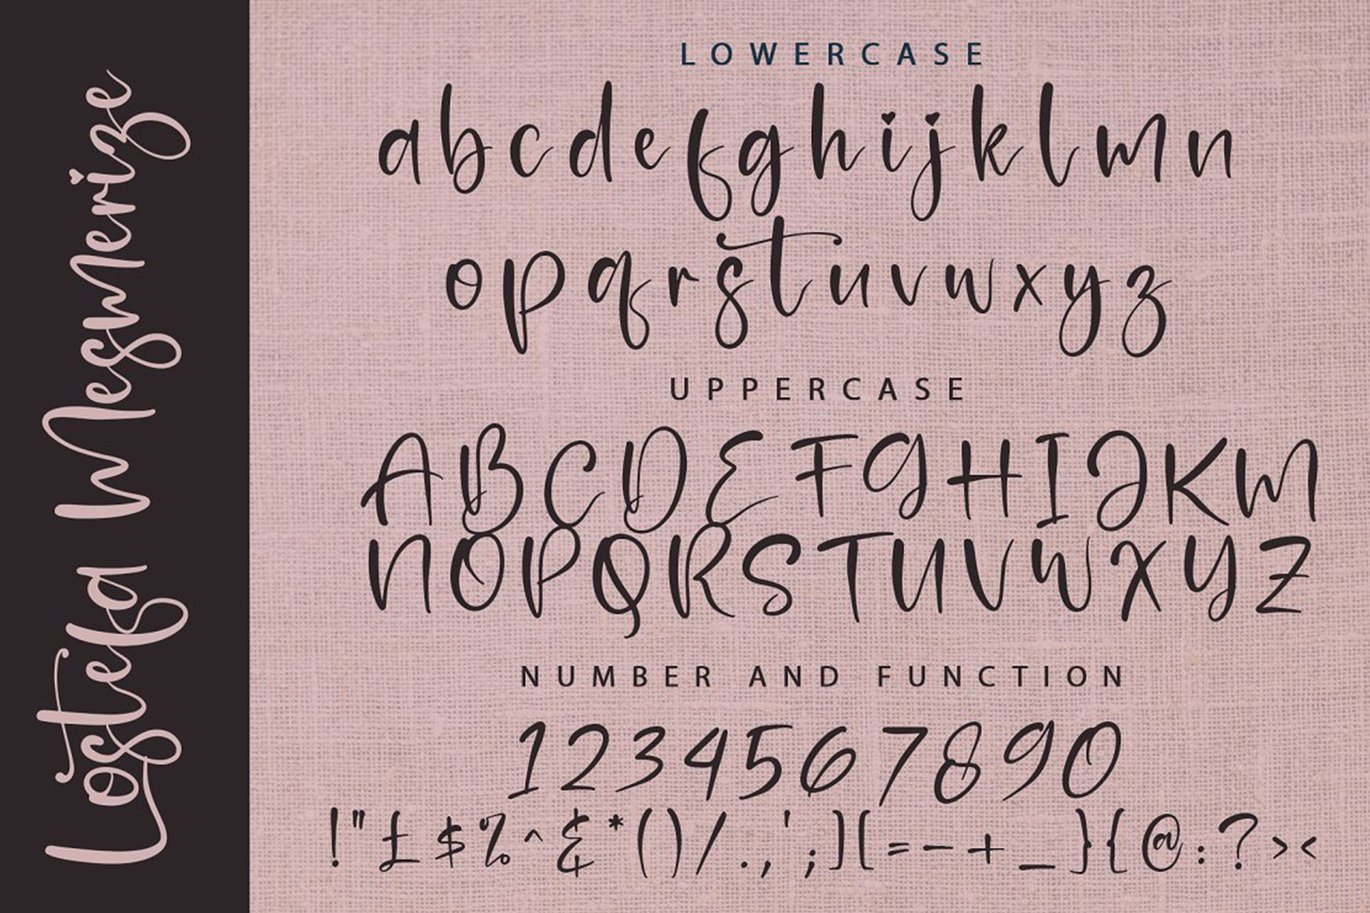 Lostefa Mesmerize
LOWERCASE
abcdefghijklmn
opqrstuvwxyz
UPPERCASE
ABCDEFGHIJKM
NOPQRSTUVWXYZ
NUMBER AND FUNCTION
1234567890
!"£$%^&*()/.,';][=-+_}{@:?><